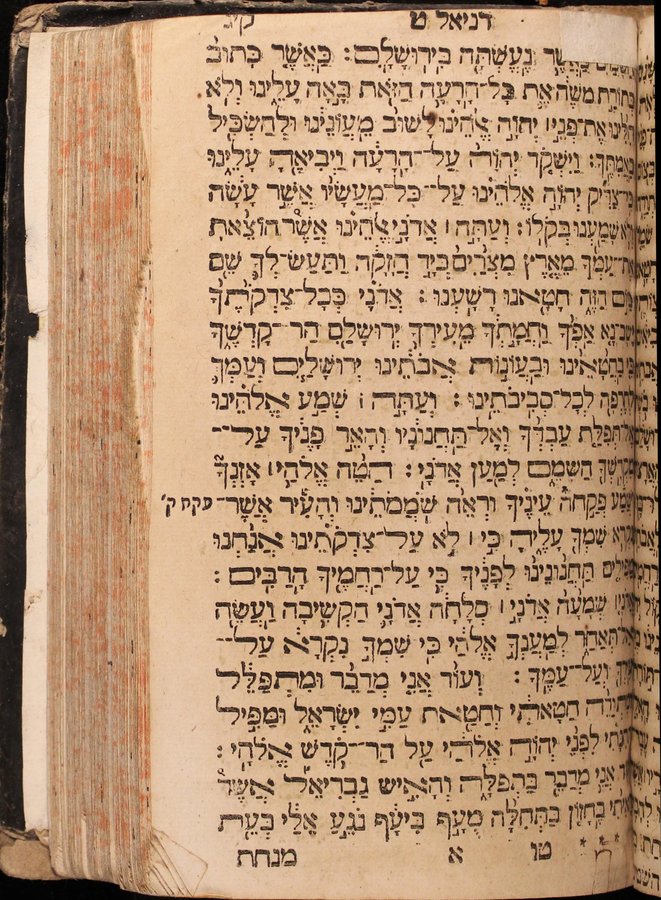 דניאל ט קיג
הַשָּׁמַיִם כַּאֲשֶׁר נֶעֶשְׂתָה בִּירוּשָׁלָם: כַּאֲשֶׁר כָּתוּב
בְּתוֹרַת מֹשֶׁה אֵת כָּל־הָרָעָה הַזֹּאת בָּאָה עָלֵינוּ וְלֹא
חִלִּינוּ אֶת־פְּנֵי ׀ יְהוָה אֱלֹהֵינוּ לָשׁוּב מֵעֲוֹנֵינוּ וּלְהַשְׂכִּיל
בַּאֲמִתֶּךָ: וַיִּשְׁקֹד יְהוָה עַל־הָרָעָה וַיְבִיאֶהָ עָלֵינוּ
כִּי־צַדִּיק יְהוָה אֱלֹהֵינוּ עַל־כָּל־מַעֲשָׂיו אֲשֶׁר עָשָׂה
וְלֹא שָׁמַעְנוּ בְּקֹלוֹ: וְעַתָּה ׀ אֲדֹנָי אֱלֹהֵינוּ אֲשֶׁר הוֹצֵאתָ
אֶת־עַמְּךָ מֵאֶרֶץ מִצְרַיִם בְּיָד חֲזָקָה וַתַּעַשׂ־לְךָ שֵׁם
כַּיּוֹם הַזֶּה חָטָאנוּ רָשָׁעְנוּ: אֲדֹנָי כְּכָל־צִדְקֹתֶךָ
יָשָׁב־נָא אַפְּךָ וַחֲמָתְךָ מֵעִירְךָ יְרוּשָׁלַםִ הַר־קָדְשֶׁךָ
כִּי בַחֲטָאֵינוּ וּבַעֲוֹנוֹת אֲבֹתֵינוּ יְרוּשָׁלַיִם וְעַמְּךָ
לְחֶרְפָּה לְכָל־סְבִיבֹתֵינוּ: וְעַתָּה ׀ שְׁמַע אֱלֹהֵינוּ
אֶל־תְּפִלַּת עַבְדְּךָ וְאֶל־תַּחֲנוּנָיו וְהָאֵר פָּנֶיךָ עַל־
מִקְדָּשְׁךָ הַשָּׁמֵם לְמַעַן אֲדֹנָי: הַטֵּה אֱלֹהַי ׀ אָזְנְךָ
וּשְׁמָע פִּקְחָה עֵינֶיךָ וּרְאֵה שֹׁמְמֹתֵינוּ וְהָעִיר אֲשֶׁר־ פקח ק'
נִקְרָא שִׁמְךָ עָלֶיהָ כִּי ׀ לֹא עַל־צִדְקֹתֵינוּ אֲנַחְנוּ
מַפִּילִים תַּחֲנוּנֵינוּ לְפָנֶיךָ כִּי עַל־רַחֲמֶיךָ הָרַבִּים:
אֲדֹנָי ׀ שְׁמָעָה אֲדֹנָי ׀ סְלָחָה אֲדֹנָי הַקְשִׁיבָה וַעֲשֵׂה
אַל־תְּאַחַר לְמַעַנְךָ אֱלֹהַי כִּי שִׁמְךָ נִקְרָא עַל־
עִירְךָ וְעַל־עַמֶּךָ: וְעוֹד אֲנִי מְדַבֵּר וּמִתְפַּלֵּל
וּמִתְוַדֶּה חַטָּאתִי וְחַטַּאת עַמִּי יִשְׂרָאֵל וּמַפִּיל
תְּחִנָּתִי לִפְנֵי יְהוָה אֱלֹהַי עַל הַר־קֹדֶשׁ אֱלֹהָי:
וְעוֹד אֲנִי מְדַבֵּר בַּתְּפִלָּה וְהָאִישׁ גַּבְרִיאֵל אֲשֶׁר
רָאִיתִי בֶחָזוֹן בַּתְּחִלָּה מֻעָף בִּיעָף נֹגֵעַ אֵלַי כְּעֵת
טו א מנחת